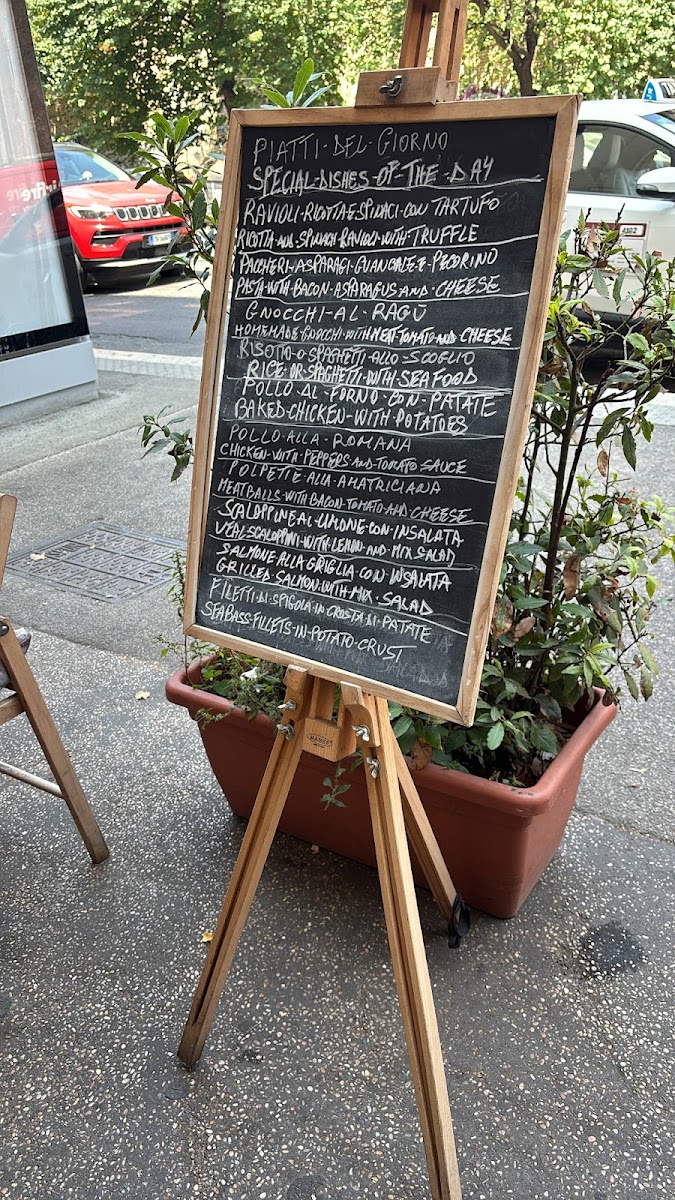 PIATTI·DEL·GIORNO
SPECIAL·DISHES·OF·THE·DAY
RAVIOLI·RICOTTA·E·SPINACI·CON TARTUFO
RICOTTA·AND·SPINACH·RAVIOLI·WITH·TRUFFLE
PACCHERI·ASPARAGI·GUANCIALE·E·PECORINO
PASTA·WITH·BACON·ASPARAGUS AND·CHEESE
GNOCCHI·AL·RAGÙ
HOMEMADE·GNOCCHI·WITH·MEAT·TOMATO·AND·CHEESE
RISOTTO·O·SPAGHETTI·ALLO·SCOGLIO
RICE·OR·SPAGHETTI·WITH·SEA FOOD
POLLO·AL·FORNO·CON·PATATE
BAKED·CHICKEN·WITH·POTATOES
POLLO·ALLA·ROMANA
CHICKEN·WITH·PEPPERS·AND·TOMATO SAUCE
POLPETTE·ALLA·AMATRICIANA
MEATBALLS·WITH·BACON·TOMATO·AND·CHEESE
SCALOPPINE·AL·LIMONE·CON·INSALATA
VEAL·SCALOPPINI·WITH·LEMON·AND·MIX·SALAD
SALMONE·ALLA·GRIGLIA·CON·INSALATA
GRILLED·SALMON·WITH·MIX·SALAD
FILETTI·DI·SPIGOLA·IN·CROSTA·DI·PATATE
SEABASS·FILLETS·IN·POTATO·CRUST